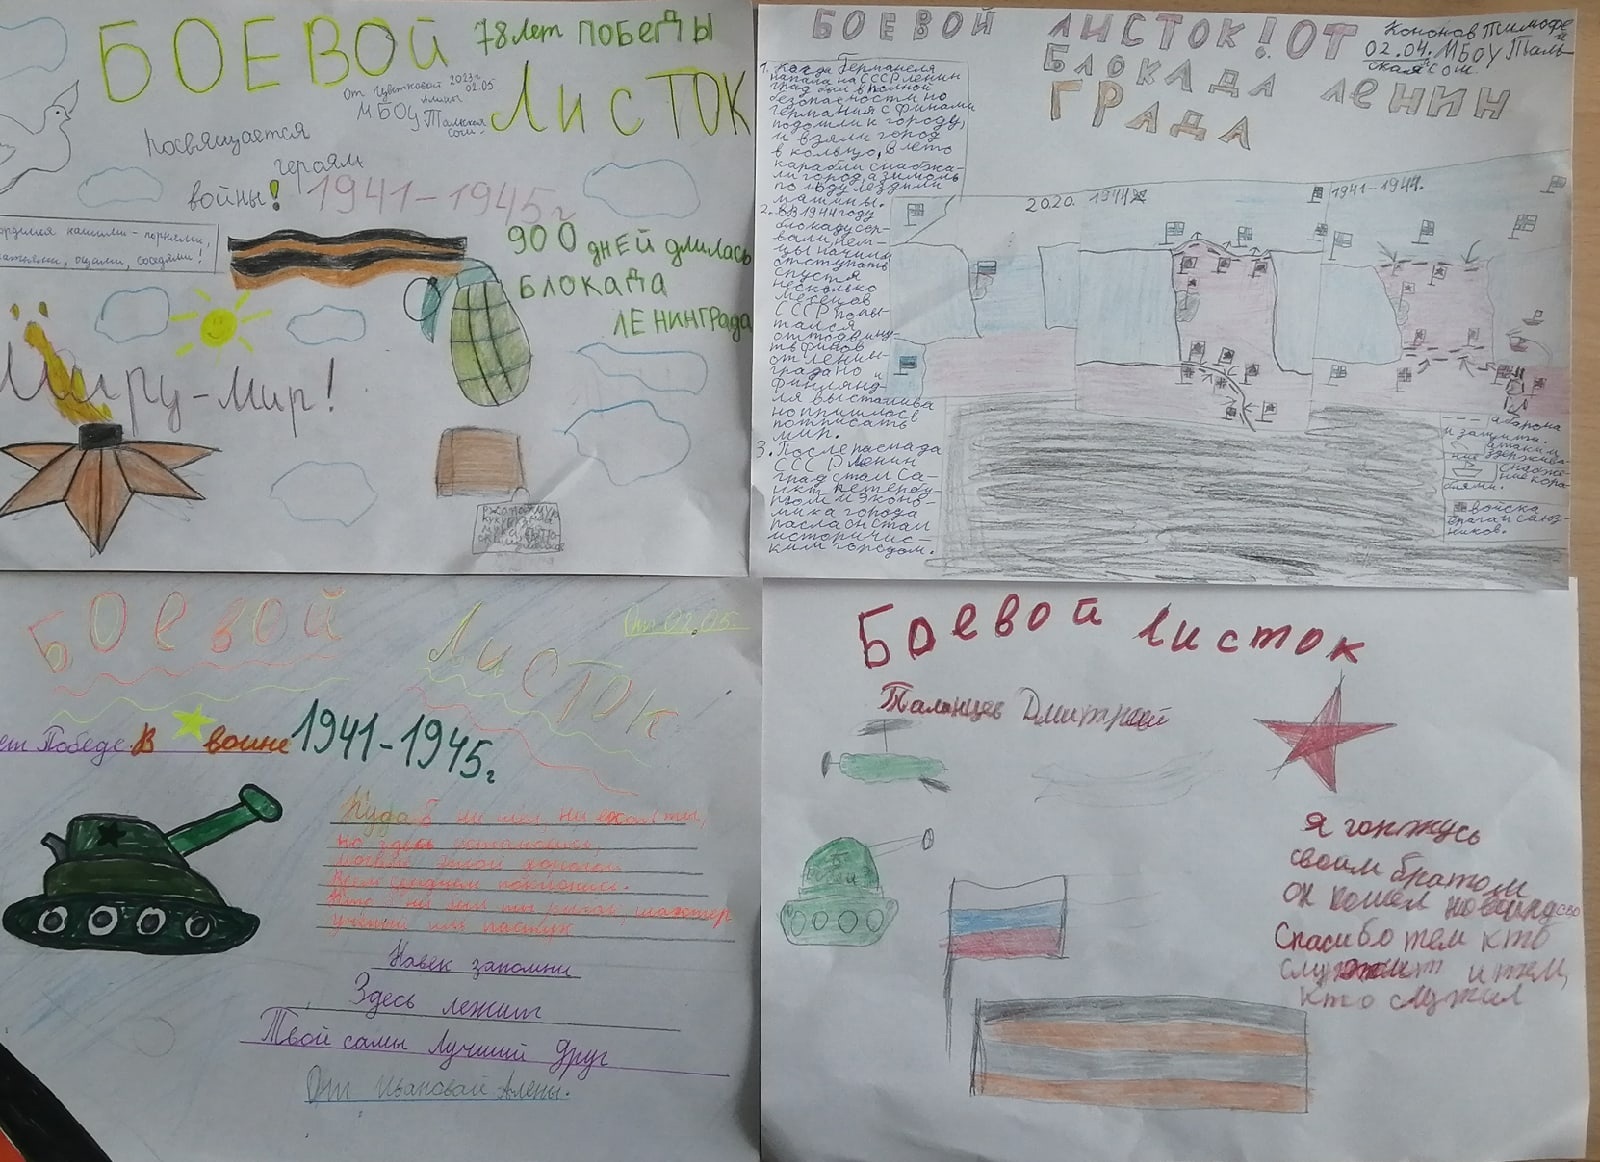 БОЕВОЙ
ЛИСТОК
78 лет ПОБЕДЫ
От Цветковой 2023г.
02.05
МБОУ Тальская
сош.
Посвящается
героям
войны! 1941-1945г
нашими-
отцами, соседями!
900 дней длилась
БЛОКАДА
ЛЕНИНГРАДА
Миру-Мир!
БОЕВОЙ ЛИСТОК! ОТ
Кононов Тимофе
й
02.04. МБОУ Таль-
ская сош.
БЛОКАДА ЛЕНИН
ГРАДА
1. Когда Германия
напала на СССР Ленин
град был в полной
безопасности но
Германия с Финами
подошли к городу,
и взяли город
в кольцо, в лето
карабли снабжа-
ли город а зимой
по льду ездили
машины.
2. В 1944 году
блокаду сор-
вали, нем-
цы начали
отступать
спустя
несколько
месецов
СССР попы-
тался
отодвину-
ть финов
от Ленин-
града но
Финлянд-
ия выстаива
но пришлось
потписать
мир.
3. После распада
СССР Ленин
град стал Са-
нкт Петербу-
ргом и эконо-
мика города
пасла он стал
историчис-
ким городом.
2020. 1944
1941-1944.
абарона
и защити.
атаки и
здержива-
ние
снабже-
ние кора-
блями.
войска
врага и союз-
ников.
БОЕВОЙ ЛИСТОК
От 02.05.
Победе. В войне 1941-1945г
Куда б ни шел, ни ехал ты,
но здесь остановись,
могиле этой дорогой
Всем сердцем поклонись.
Кто б ни был ты рыбак, шахтер
учёный иль пастух
Навек запомни
Здесь лежит
Твой самы Лучший Друг
От Ивановай Алены.
Боевой листок
Таланцев Дмитрий
Я горжусь
своим братом
он пошел на
Спасибо тем кто
служит и тем,
кто служил